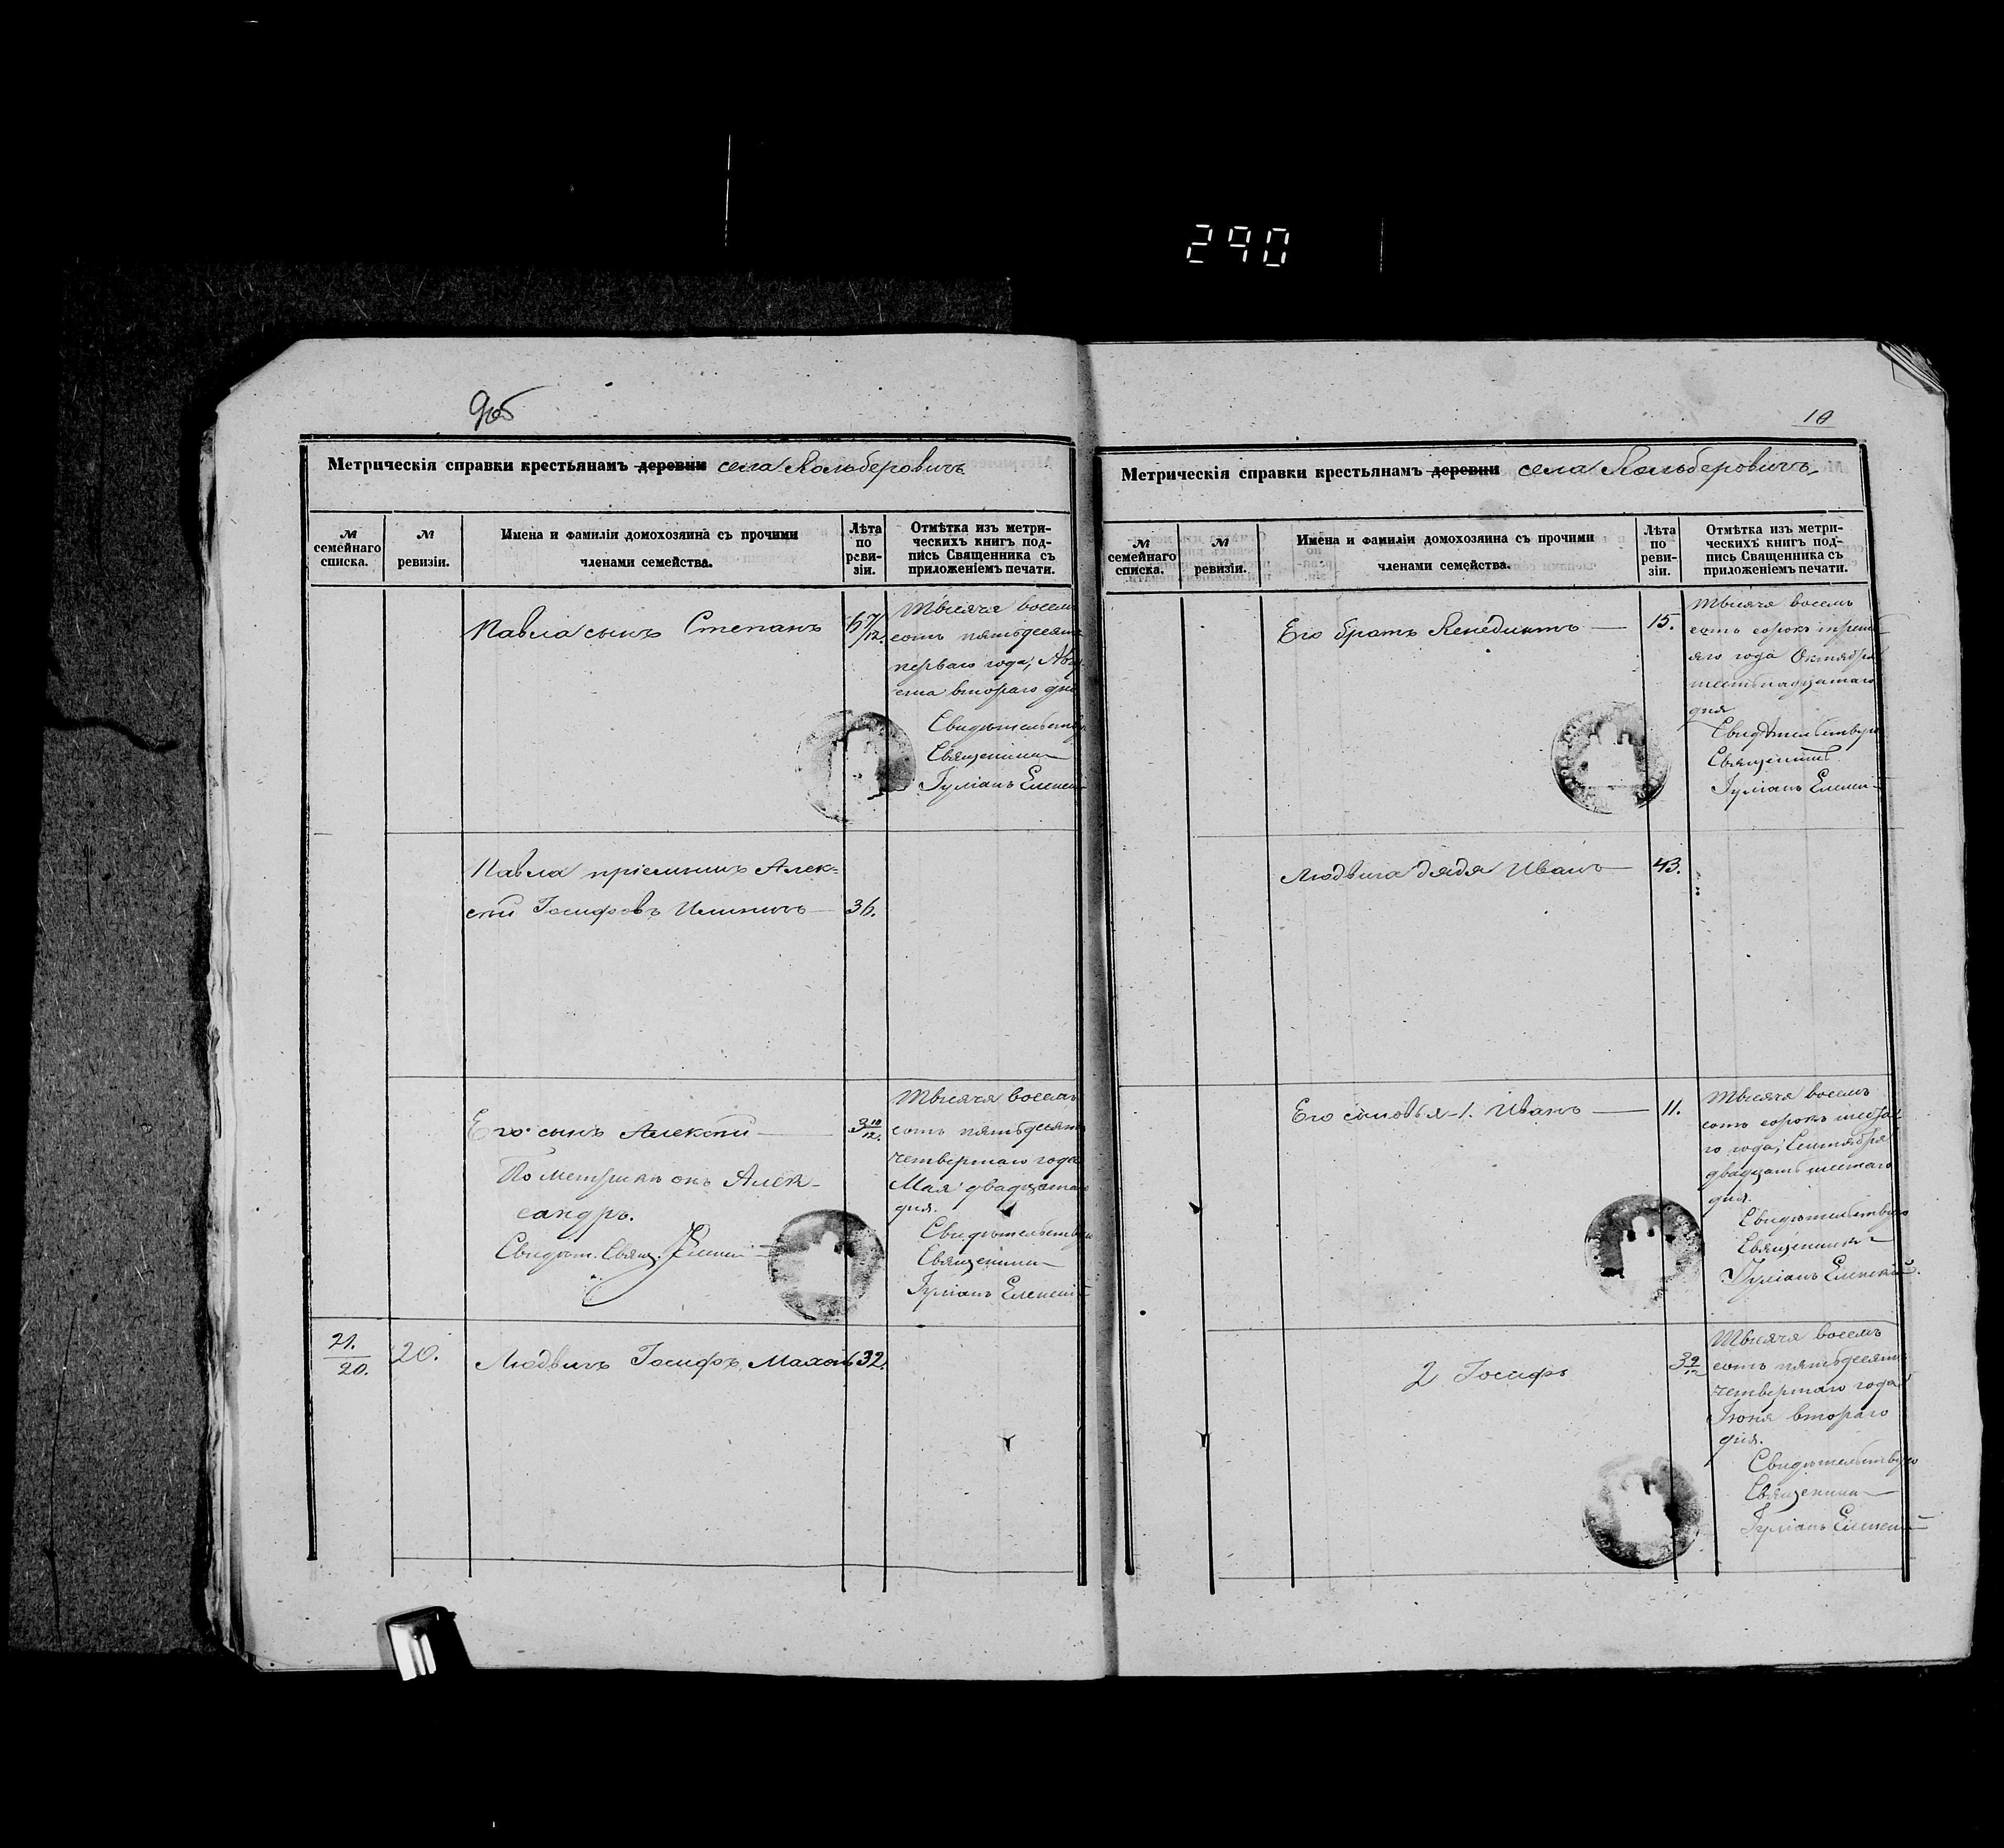 290
9об
Метрическія справки крестьянамъ деревни села Кольберовичъ
№ семейнаго списка.
№ ревизіи.
Имена и фамиліи домохозяина съ прочими
членами семейства.
Лѣта по реви-зіи.
Отмѣтка изъ метри-
ческихъ книгъ под-
пись Священника съ
приложеніемъ печати.
Павла сынъ Степанъ
6 7/12
Тысяча восемь
сотъ пятьдесятъ
перваго года, Авгу
ста втораго дня
Свидѣтельствую
Священникъ
Іуліанъ Еленскій
Павла пріемышъ Алек-
сѣй Іосифовъ
36.
Его сынъ Алексѣй
3 10/12.
По метрикѣ онъ Алек-
сандръ.
Свидѣт. Свящ.
Тысяча восемь
сотъ пятьдесятъ
четвертаго года
Мая двадцатаго
дня.
Свидѣтельствую
Священникъ
Іуліанъ Еленскій
21.
20.
20.
Людвигъ Іосифъ
32.
10
Метрическія справки крестьянамъ деревни села Кольберовичъ
№ семейнаго списка.
№ ревизіи.
Имена и фамиліи домохозяина съ прочими
членами семейства.
Лѣта по реви-зіи.
Отмѣтка изъ метри-
ческихъ книгъ под-
пись Священника съ
приложеніемъ печати.
Его братъ Венедиктъ
15.
Тысяча восемь
сотъ сорокъ треть
яго года Октября
шестьнадцатаго
дня
Свидѣтельствую
Священникъ
Іуліанъ Еленскій
Людвига дядя Иванъ
43.
Его сыновья - 1. Иванъ
11.
Тысяча восемь
сотъ сорокъ шеста
го года, Сентября
двадцать шестаго
дня.
Свидѣтельствую
Священникъ
Іуліанъ Еленскій.
2 Іосифъ
3 9/12
Тысяча восемь
сотъ пятьдесятъ
четвертаго года
Іюня втораго
дня.
Свидѣтельствую
Священникъ
Іуліанъ Еленскій